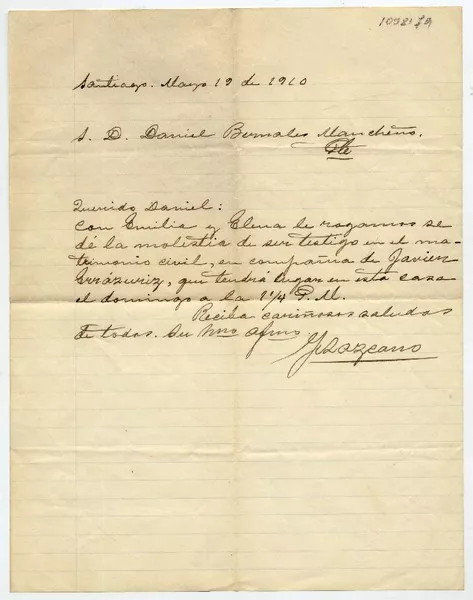 Santiago. Mayo 19 de 1910
S. D. Daniel Bernales Mancheño.
Pte
Querido Daniel:
Con Emilia y Elena le rogamos se
dé la molestia de ser testigo en el ma-
trimonio civil, en compañia de Javier
Errázuriz, que tendrá lugar en esta casa
el domingo a la 1 1/4 P.M.
Reciba cariñosos saludos
de todos. Su Hno afmo.
Lazcano